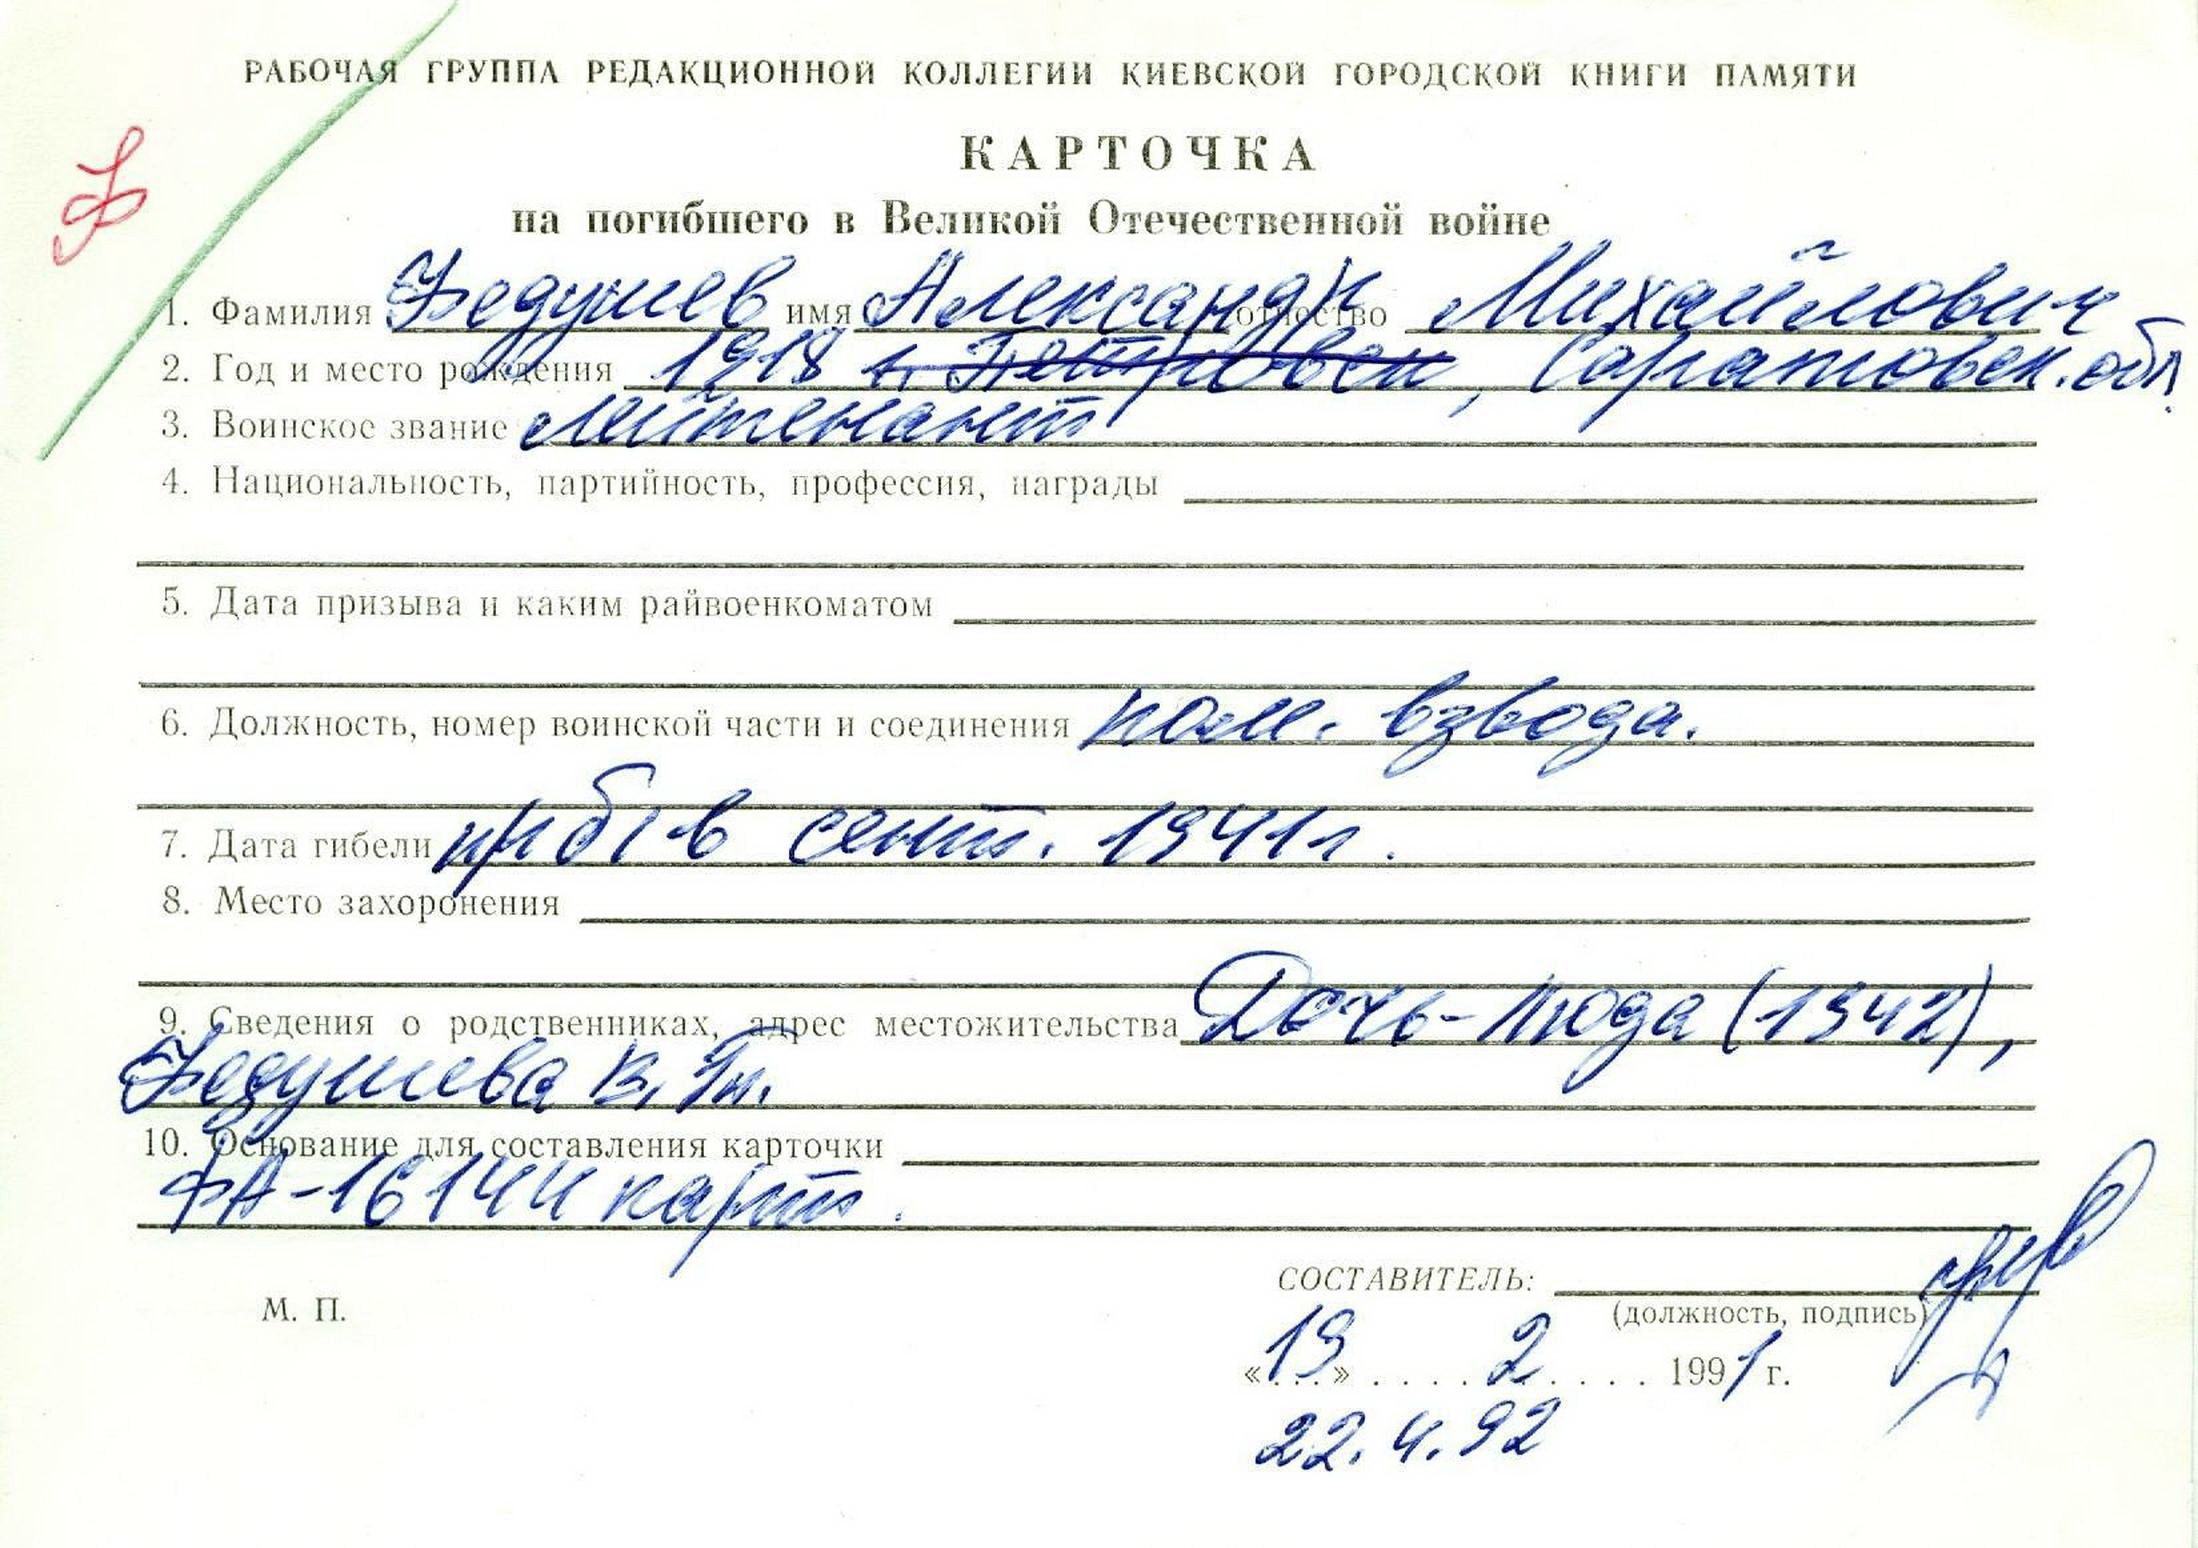 Ф
РАБОЧАЯ ГРУППА РЕДАКЦИОННОЙ КОЛЛЕГИИ КИЕВСКОЙ ГОРОДСКОЙ КНИГИ ПАМЯТИ
КАРТОЧКА
на погибшего в Великой Отечественной войне
1. Фамилия Федушев имя Александр отчество Михайлович
2. Год и место рождения 1918 г. Петровск, Саратовск. обл.
3. Воинское звание лейтенант
4. Национальность, партийность, профессия, награды
5. Дата призыва и каким райвоенкоматом
6. Должность, номер воинской части и соединения ком. взвода.
7. Дата гибели пр б/в сент. 1941 г.
8. Место захоронения
9. Сведения о родственниках, адрес местожительства Дочь - Люда (1942),
Федушева В. Гн.
10. Основание для составления карточки
ФА-16144 карт.
СОСТАВИТЕЛЬ:
М. П.
(должность, подпись)
«19» 2 1991 г.
22.4.92